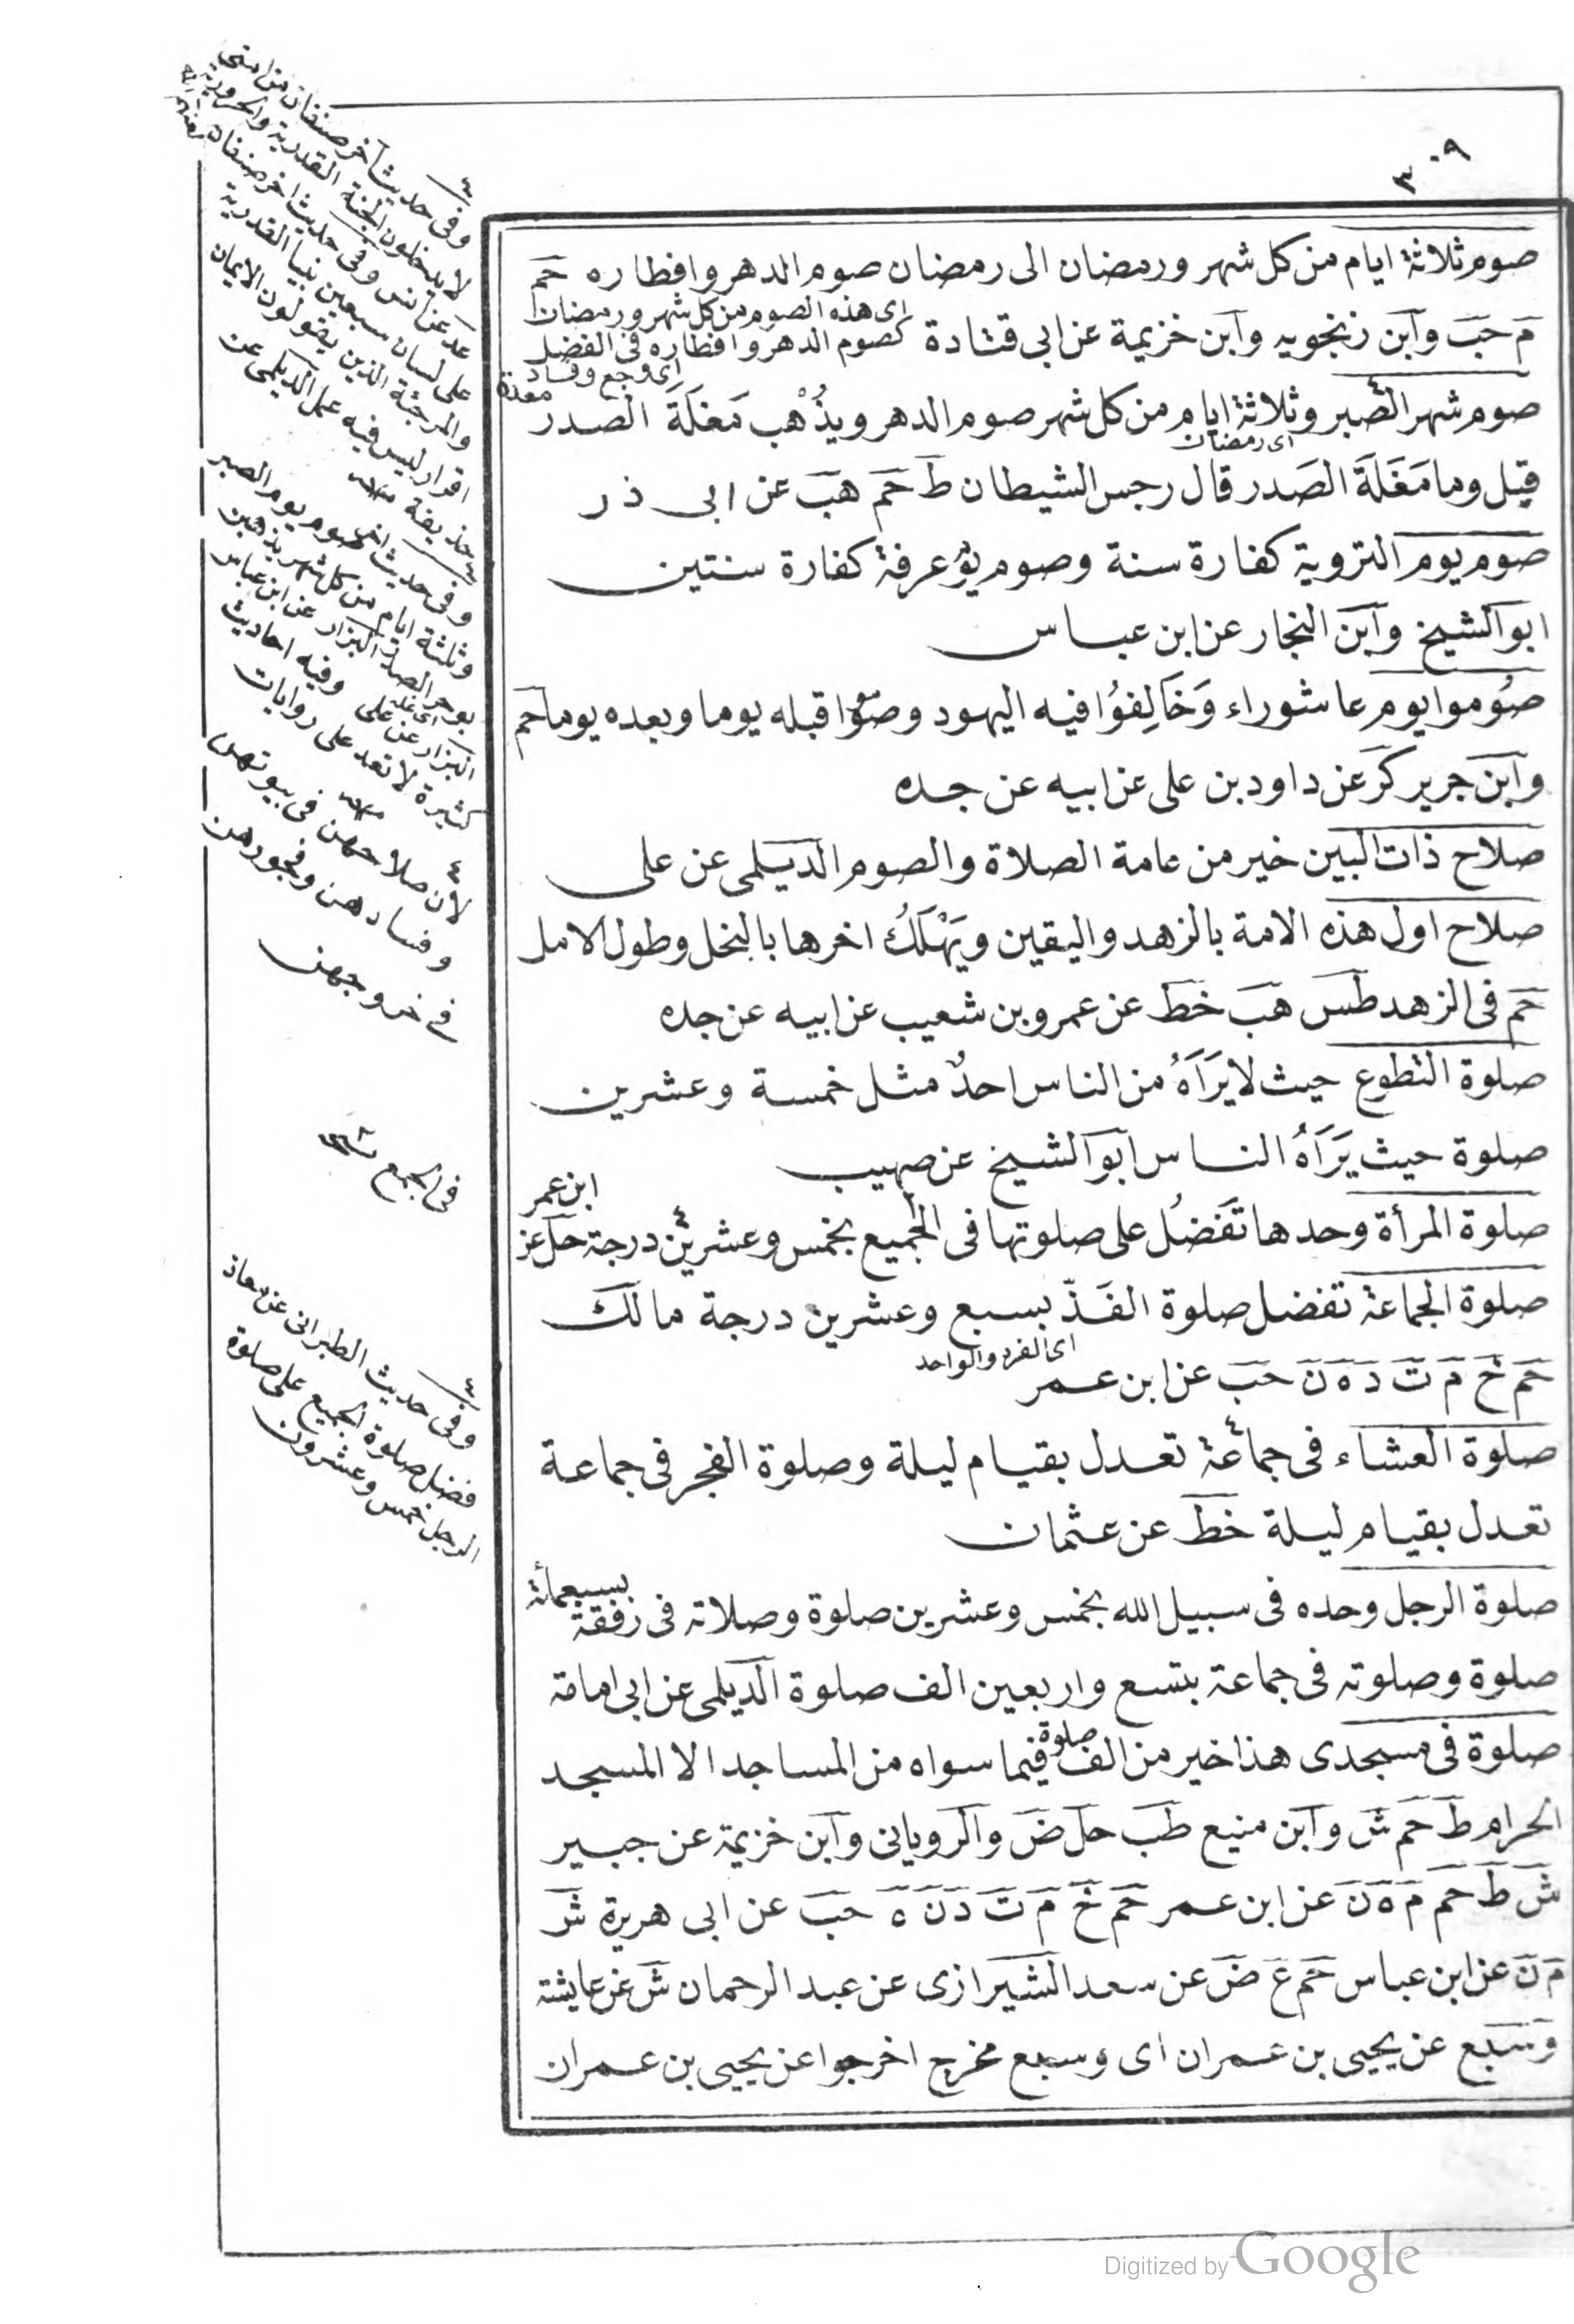 ٣٠٩
صوم ثلاثة ايام من كل شهر ورمضان الى رمضان صوم الدهر وافطاره حم
م حب وابن زنجويه وابن خزيمة عن ابى قتادة
اى هذه الصوم من كل شهر ورمضان
كصوم الدهر وافطاره فى الفضل
اى وجع وفساد معدة
صوم شهر الصبر وثلاثة ايام من كل شهر صوم الدهر ويذْهب مَغَلَةَ الصدر
اى رمضان
قيل وما مَغَلَةَ الصَدر قال رجس الشيطان ط حم هب عن ابى ذر
صوم يوم التروية كفارة سنة وصوم يوم عرفة كفارة سنتين
ابو الشيخ وابن النجار عن ابن عباس
صُوموا يوم عاشوراء وَخَالِفوُا فيه اليهود وصوموا قبله يوما وبعده يوما حم
وابن جرير كر عن داود بن على عن ابيه عن جده
صلاح ذات البين خير من عامة الصلاة والصوم الديلمى عن على
صلاح اول هذه الامة بالزهد واليقين ويَهْلَكُ اخرها بالبخل وطول الامل
حم فى الزهد طس هب خط عن عمرو بن شعيب عن ابيه عن جده
صلوة التطوع حيث لا يَرَاَهُ من الناس احدٌ مثل خمسة وعشرين
صلوة حيث يَرَاَهُ الناس ابو الشيخ عن صهيب
صلوة المرأة وحدها تَفضلُ على صلوتها فى الجميع بخمس وعشرين درجة حل عن
ابن عمر
صلوة الجماعة تفضل صلوة الفَذّ بسبع وعشرين درجة مالك
اى الفرد والواحد
حم خ م ت د ه ن حب عن ابن عمر
صلوة العشاء فى جماعة تعدل بقيام ليلة وصلوة الفجر فى جماعة
تعدل بقيام ليلة خط عن عثمان
صلوة الرجل وحده فى سبيل الله بخمس وعشرين صلوة وصلاته فى رفقة
بسبعمأة
صلوة وصلوته فى جماعة بتسع واربعين الف صلوة الديلمى عن ابى امامة
صلوة فى مسجدى هذا خير من الف صلوة فيما سواه من المساجد الا المسجد
الحرام ط حم ش وابن منيع طب حل ض والرويانى وابن خزيمة عن جبير
ش ط حم م ه ن عن ابن عمر حم خ م ت د ن ه حب عن ابى هريرة ش
م ن عن ابن عباس حم ع ض عن سعد الشيرازى عن عبد الرحمان ش عن عايشة
وسبع عن يحيى بن عمران اى وسبع مخرج اخرجوا عن يحيى بن عمران
وفى حديث آخر صنفان من امتى
لا يدخلون الجنة القدرية والحرورية
عد عن انس وفى حديث اخر صنفان لعنهم الله
على لسان سبعين نبيا القدرية
والمرجئة الذين يقولون الايمان
اقرار ليس فيه عمل الديلمى عن
حذيفة
وفى حديث اخر صوم يوم الصبر
وثلثة ايام من كل شهر يذهبن
بوحر الصدر البزار عن ابن عباس
البزار عن على وفيه احاديث
كثيرة لا تعد على روايات
لأن صلاحهن فى بيوتهن
وفسادهن وفجورهن
فى خروجهن
فى الجمع
وفى حديث الطبرانى عن معاذ
فضل صلوة الجميع على صلوة
الرجل خمس وعشرون
Digitized by Google